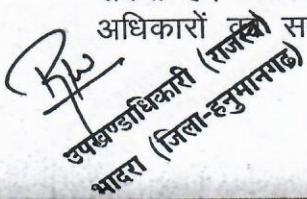 अधिकारों का स
उपखण्डाधिकारी (राजस्व)
भादरा (जिला-हनुमानगढ)